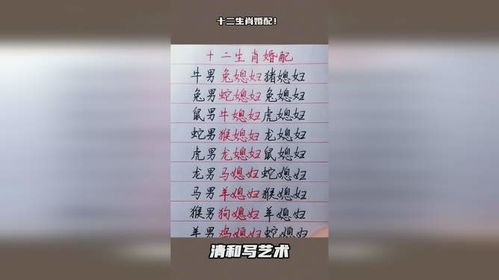 十二生肖婚配!
十二生肖婚配
牛男兔媳妇猪媳妇
兔男蛇媳妇兔媳妇
鼠男牛媳妇虎媳妇
蛇男猴媳妇龙媳妇
虎男龙媳妇鼠媳妇
龙男马媳妇蛇媳妇
马男羊媳妇猴媳妇
猴男狗媳妇羊媳妇
羊男鸡媳妇马媳妇
清和写艺术